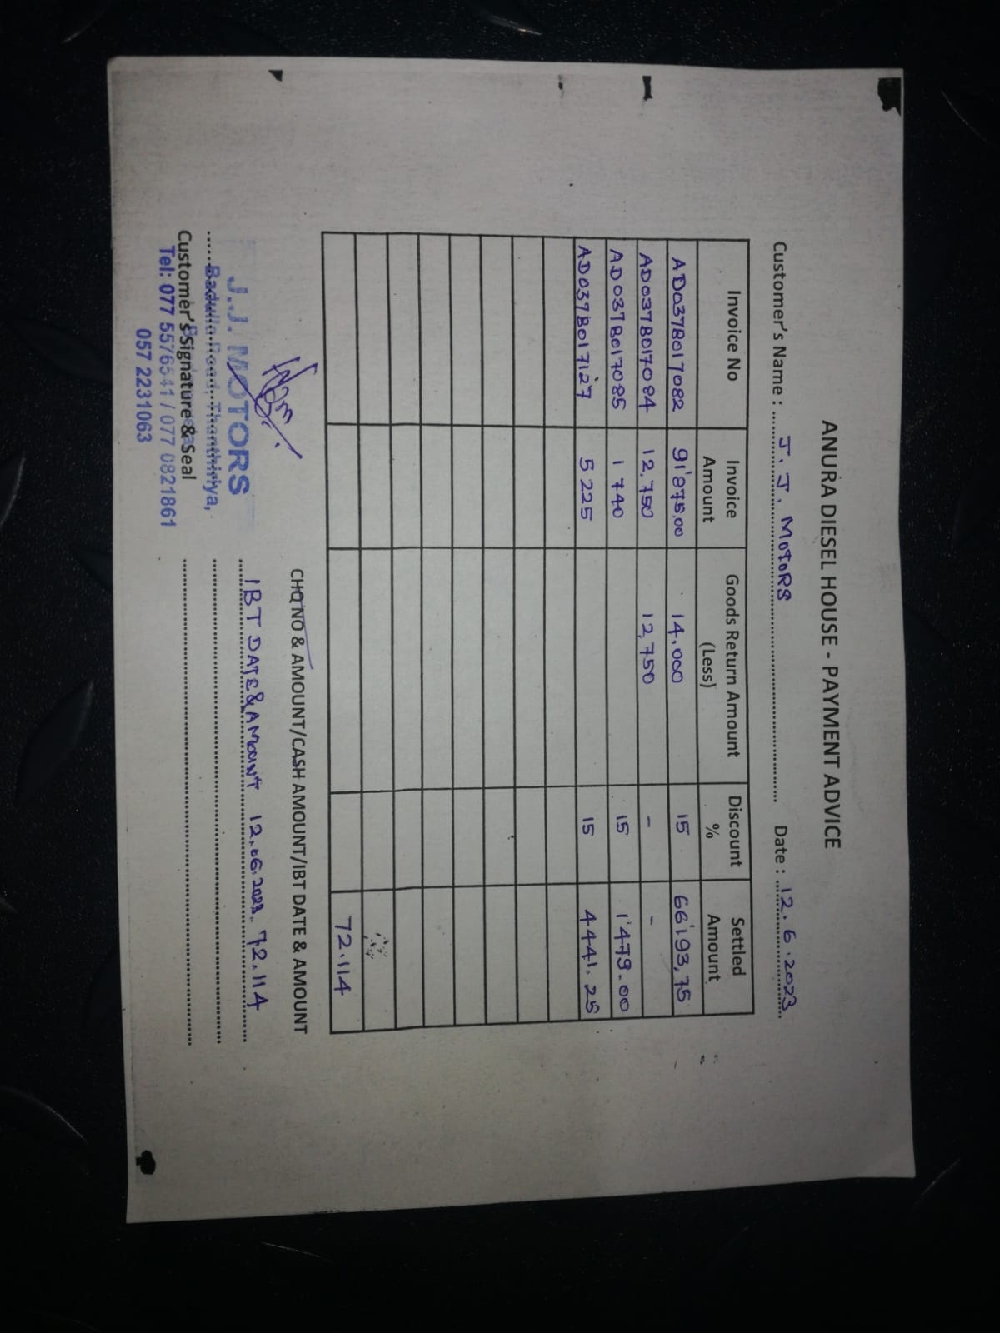 ANURA DIESEL HOUSE - PAYMENT ADVICE
Customer's Name : J. J. MOTORS Date : 12.6.2023
Invoice No Invoice Amount Goods Return Amount (Less) Discount % Settled Amount
AD037B017082 91'875.00 14.000 15 66193,75
AD037B017084 12,750 12,750 - -
AD037B017085 1740 15 1'479.00
AD037B017127 5225 15 4441.25
72.114
CHQ NO & AMOUNT/CASH AMOUNT/IBT DATE & AMOUNT
IBT DATE & AMOUNT 12.06.2023. 72.114
J.J. MOTORS
Badulla Road, Thanthiriya,
Customer's Signature & Seal
Tel: 077 5576541 / 077 0821861
057 2231063